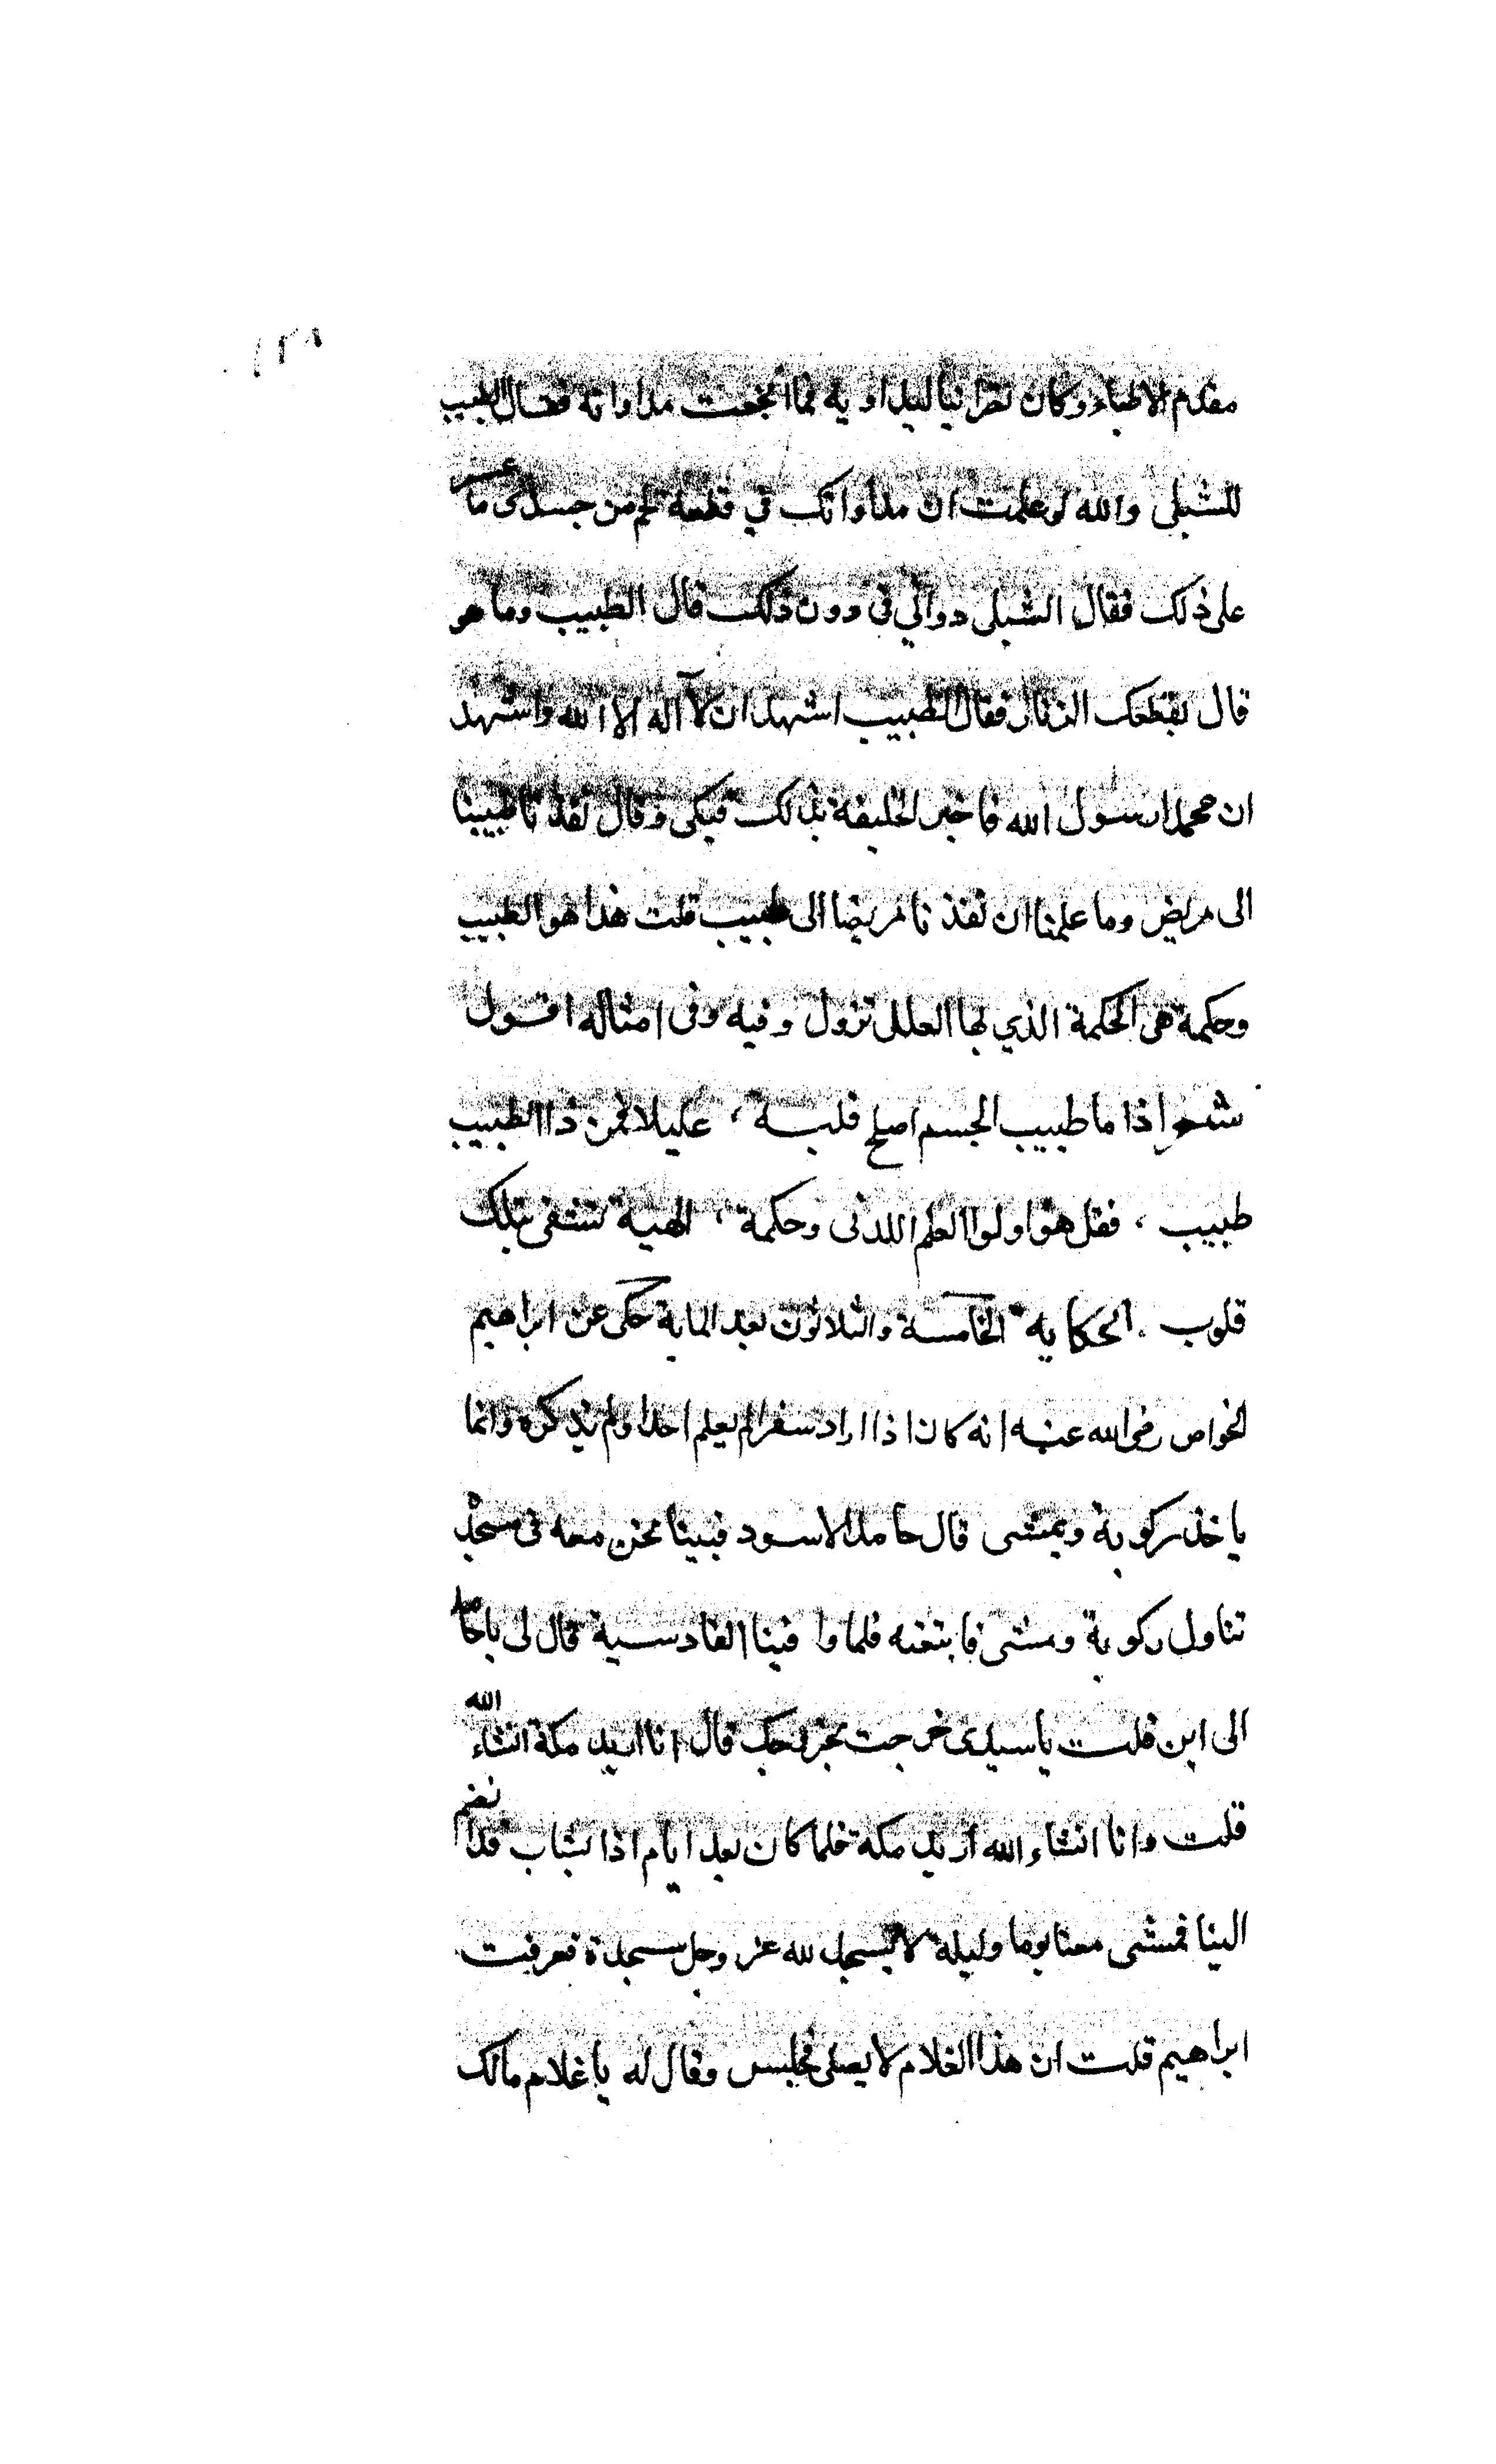 ١٢٨
مقدم الاطباء وكان نصرانيا ليداويه فما انجحت مداواته فقال الطبيب
للشبلى والله لو علمت ان مداواتك في قطعة لحم من جسدى ما عسر
على ذلك فقال الشبلى دوائي فى دون ذلك قال الطبيب وما هو
قال بقطعك الزنار فقال الطبيب اشهد ان لآ اله الا الله واشهد
ان محمدا رسول الله فاخبر الخليفة بذلك فبكى وقال نفذنا طبيبنا
الى مريض وما علمنا ان نفذنا مريضا الى طبيب قلت هذا هو الطبيب
وحكمة هى الحكمة الذي بها العلل تزول وفيه وفى امثاله اقول
شعر اذا ما طبيب الجسم اصلح قلبه ، عليلا فمن ذا الطبيب
طبيب ، فقل هو اولوا العلم اللدنى وحكمة ، الهية تشفى بتلك
قلوب . الحكايه الخامسة والثلاثون بعد الماية حكى عن ابراهيم
الخواص رضى الله عنه انه كان اذا اراد سفرا لم يعلم احدا ولم يذكره وانما
ياخذ ركوبة ويمشى قال حامد الاسود فبينا نحن معه فى مسجد
تناول ركوبة ومشى فاتبعته فلما وافينا القادسية قال لى يا حامد
الى اين قلت يا سيدى خرجت بخروجك قال انا اريد مكة انشاء الله
قلت وانا انشاء الله اريد مكة فلما كان بعد ايام اذا بشاب قد انضم
الينا فمشى معنا يوما وليلة لا يسجد لله عز وجل سجدة فعرفت
ابراهيم قلت ان هذا الغلام لا يصلى فجلس وقال له يا غلام مالك